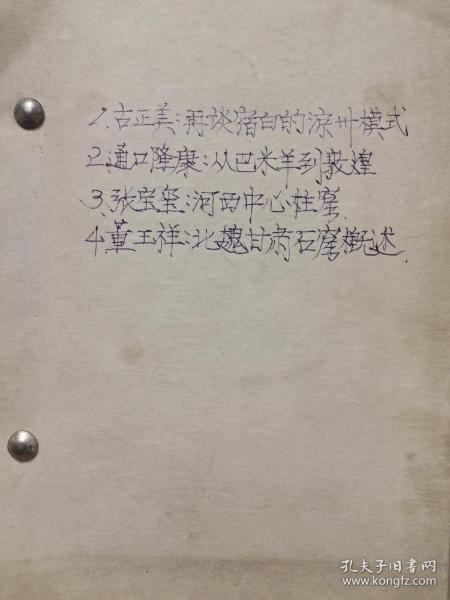 1.古正美:再谈宿白的凉州模式
2.通口隆康:从巴米羊到敦煌
3.张宝玺:河西中心柱窟
4.董玉祥:北魏甘肃石窟概述
孔夫子旧书网
www.kongfz.com